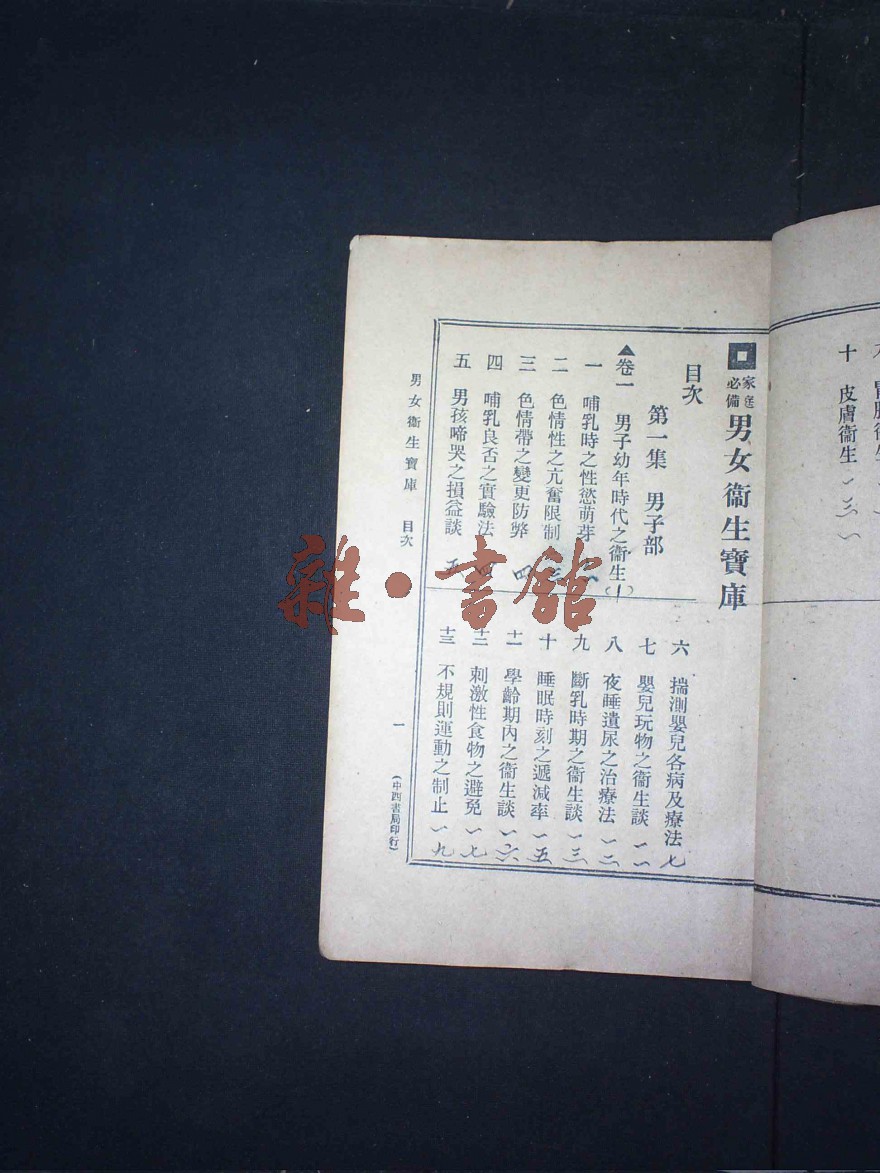 十　皮膚衞生　一三一
家庭必備　男女衞生寶庫
目次
第一集　男子部
▲卷一　男子幼年時代之衞生（一）
一　哺乳時之性慾萌芽
二　色情性之亢奮限制
三　色情帶之變更防弊　四
四　哺乳良否之實驗法　四
五　男孩啼哭之損益談　五
六　揣測嬰兒各病及療法　七
七　嬰兒玩物之衞生談　一一
八　夜睡遺尿之治療法　一二
九　斷乳時期之衞生談　一三
十　睡眠時刻之遞減率　一五
十一　學齡期內之衞生談　一六
十二　刺激性食物之避免　一七
十三　不規則運動之制止　一九
男女衞生寶庫　目次　一　（中西書局印行）
雜·書館